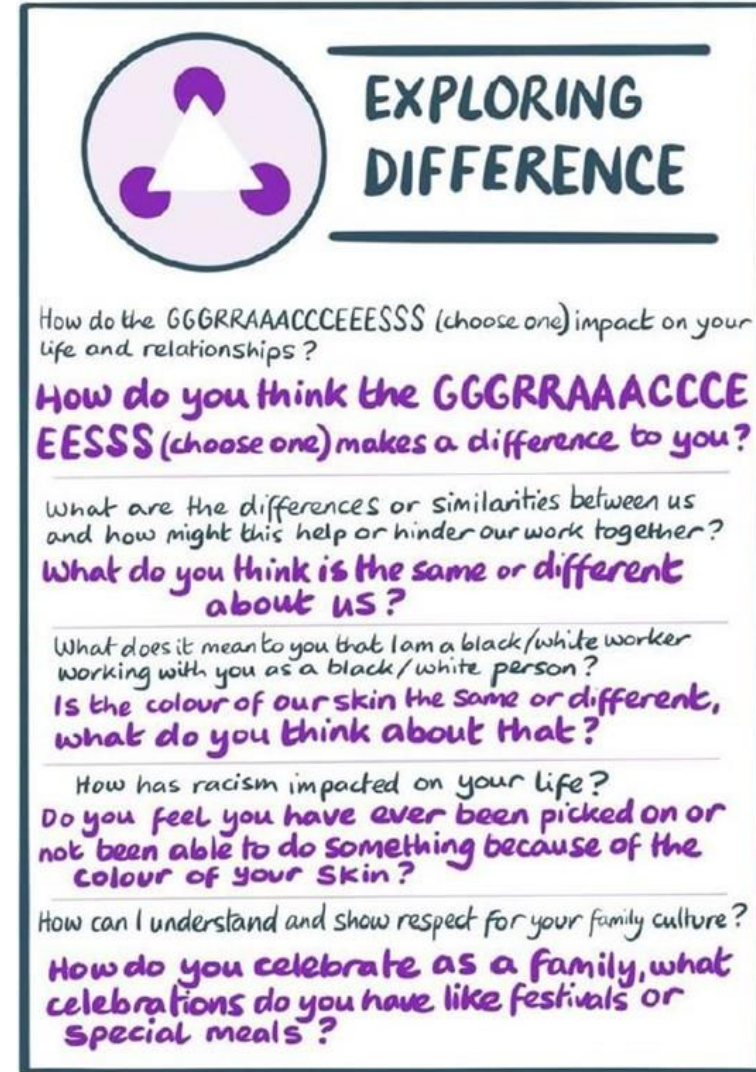 EXPLORING
DIFFERENCE
How do the GGGRRAAACCCEEESSS (choose one) impact on your
life and relationships?
How do you think the GGGRRAAACCCE
EESSS (choose one) makes a difference to you?
What are the differences or similarities between us
and how might this help or hinder our work together?
What do you think is the same or different
about us?
What does it mean to you that I am a black/white worker
working with you as a black/white person?
Is the colour of our skin the same or different,
what do you think about that?
How has racism impacted on your life?
Do you feel you have ever been picked on or
not been able to do something because of the
colour of your skin?
How can I understand and show respect for your family culture?
How do you celebrate as a family, what
celebrations do you have like festivals or
special meals?